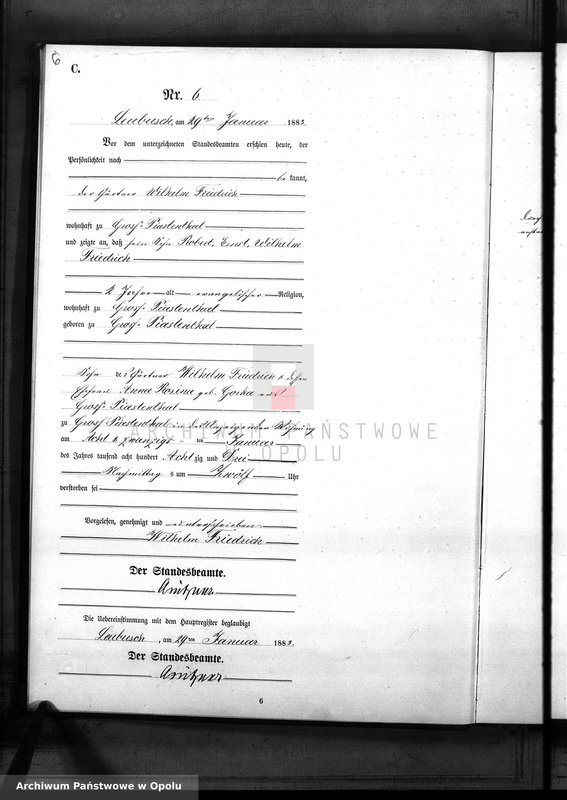 6
C.
Nr. 6
Leubusch, am 29ten Januar 1883.
Vor dem unterzeichneten Standesbeamten erschien heute, der
Persönlichkeit nach
be kannt,
der Gärtner Wilhelm Friedrich
wohnhaft zu Groß-Piastenthal
und zeigte an, daß sein Sohn Robert, Ernst, Wilhelm
Friedrich
2 Jahre alt evangelischer Religion,
wohnhaft zu Groß-Piastenthal
geboren zu Groß-Piastenthal
Sohn des Gärtner Wilhelm Friedrich & dessen
Ehefrau Anna Rosina geb. Goreka
Groß-Piastenthal
zu Groß Piastenthal in des Anzeigenden Wohnung
am Acht & zwanzigst en Januar
des Jahres tausend acht hundert Acht zig und Drei
Nachmittag s um Zwölf Uhr
verstorben sei
Vorgelesen, genehmigt und unterschrieben
Wilhelm Friedrich
Der Standesbeamte.
Die Uebereinstimmung mit dem Hauptregister beglaubigt
Leubusch, am 29ten Januar 1883.
Der Standesbeamte.
6
ARCHIWUM PAŃSTWOWE
W OPOLU
Archiwum Państwowe w Opolu